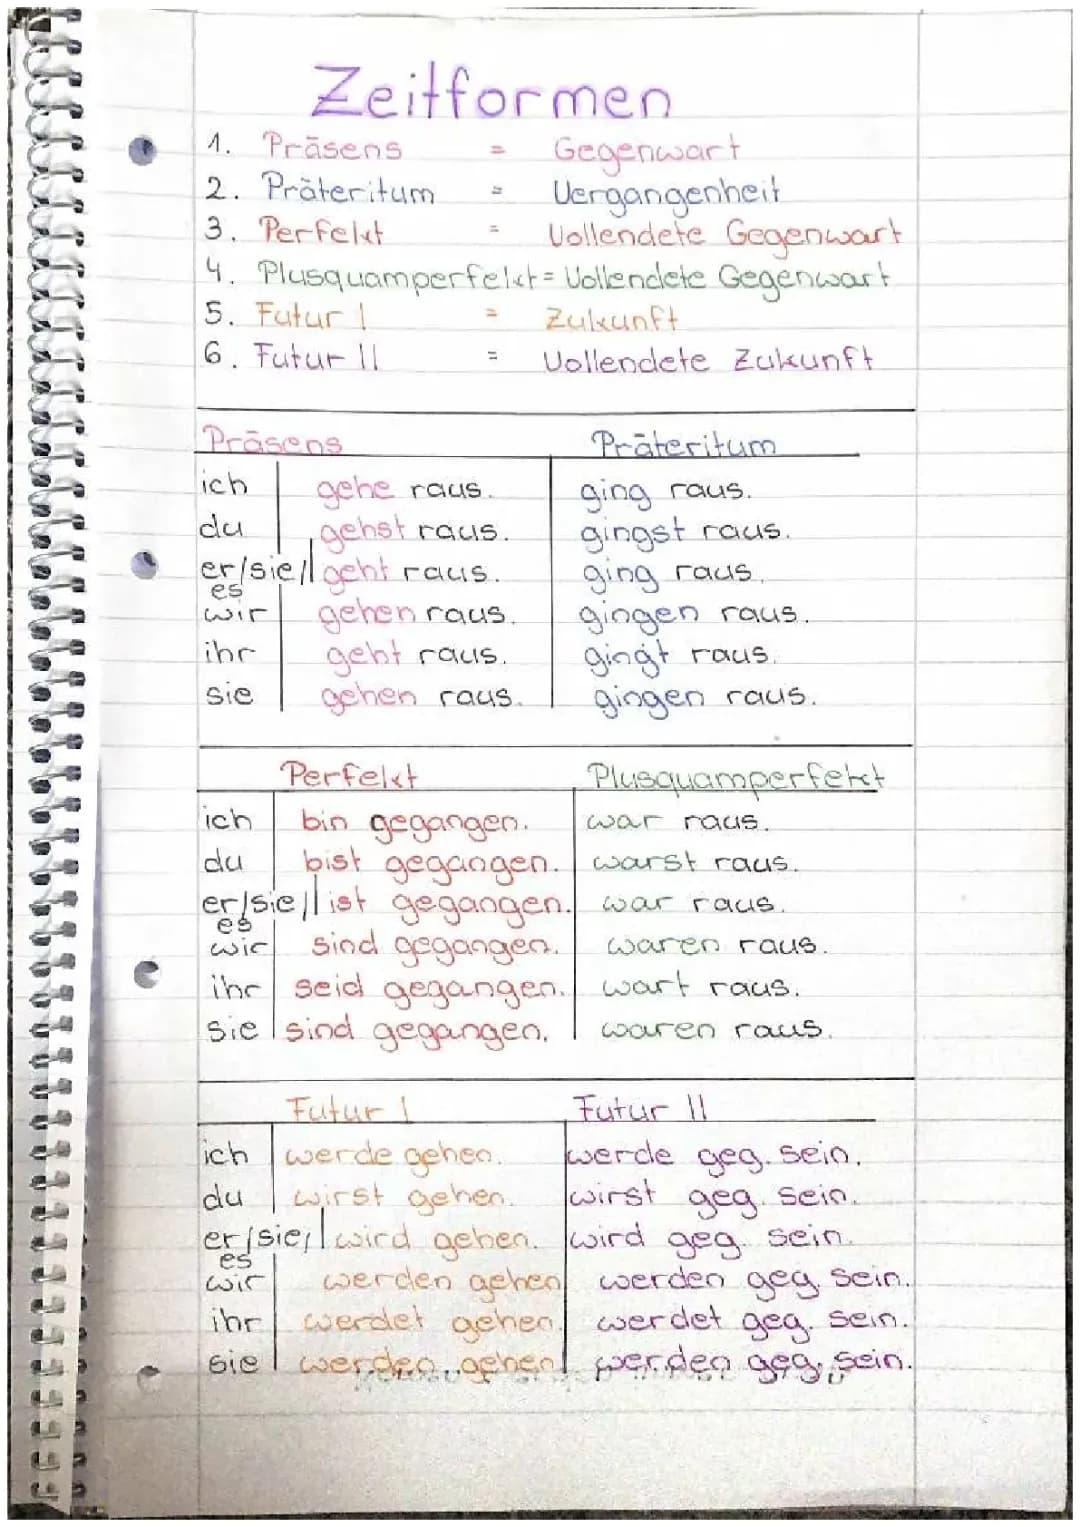 Zeitformen
1. Präsens = Gegenwart
2. Präteritum = Vergangenheit
3. Perfekt = Vollendete Gegenwart
4. Plusquamperfekt = Vollendete Gegenwart
5. Futur I = Zukunft
6. Futur II = Vollendete Zukunft
Präsens Präteritum
ich gehe raus. ging raus.
du gehst raus. gingst raus.
er/sie/es geht raus. ging raus.
wir gehen raus. gingen raus.
ihr geht raus. gingt raus.
sie gehen raus. gingen raus.
Perfekt Plusquamperfekt
ich bin gegangen. war raus.
du bist gegangen. warst raus.
er/sie/es ist gegangen. war raus.
wir sind gegangen. waren raus.
ihr seid gegangen. wart raus.
sie sind gegangen. waren raus.
Futur I Futur II
ich werde gehen. werde geg. sein.
du wirst gehen. wirst geg. sein.
er/sie/es wird gehen. wird geg. sein.
wir werden gehen werden geg. sein.
ihr werdet gehen. werdet geg. sein.
sie werden gehen werden geg. sein.